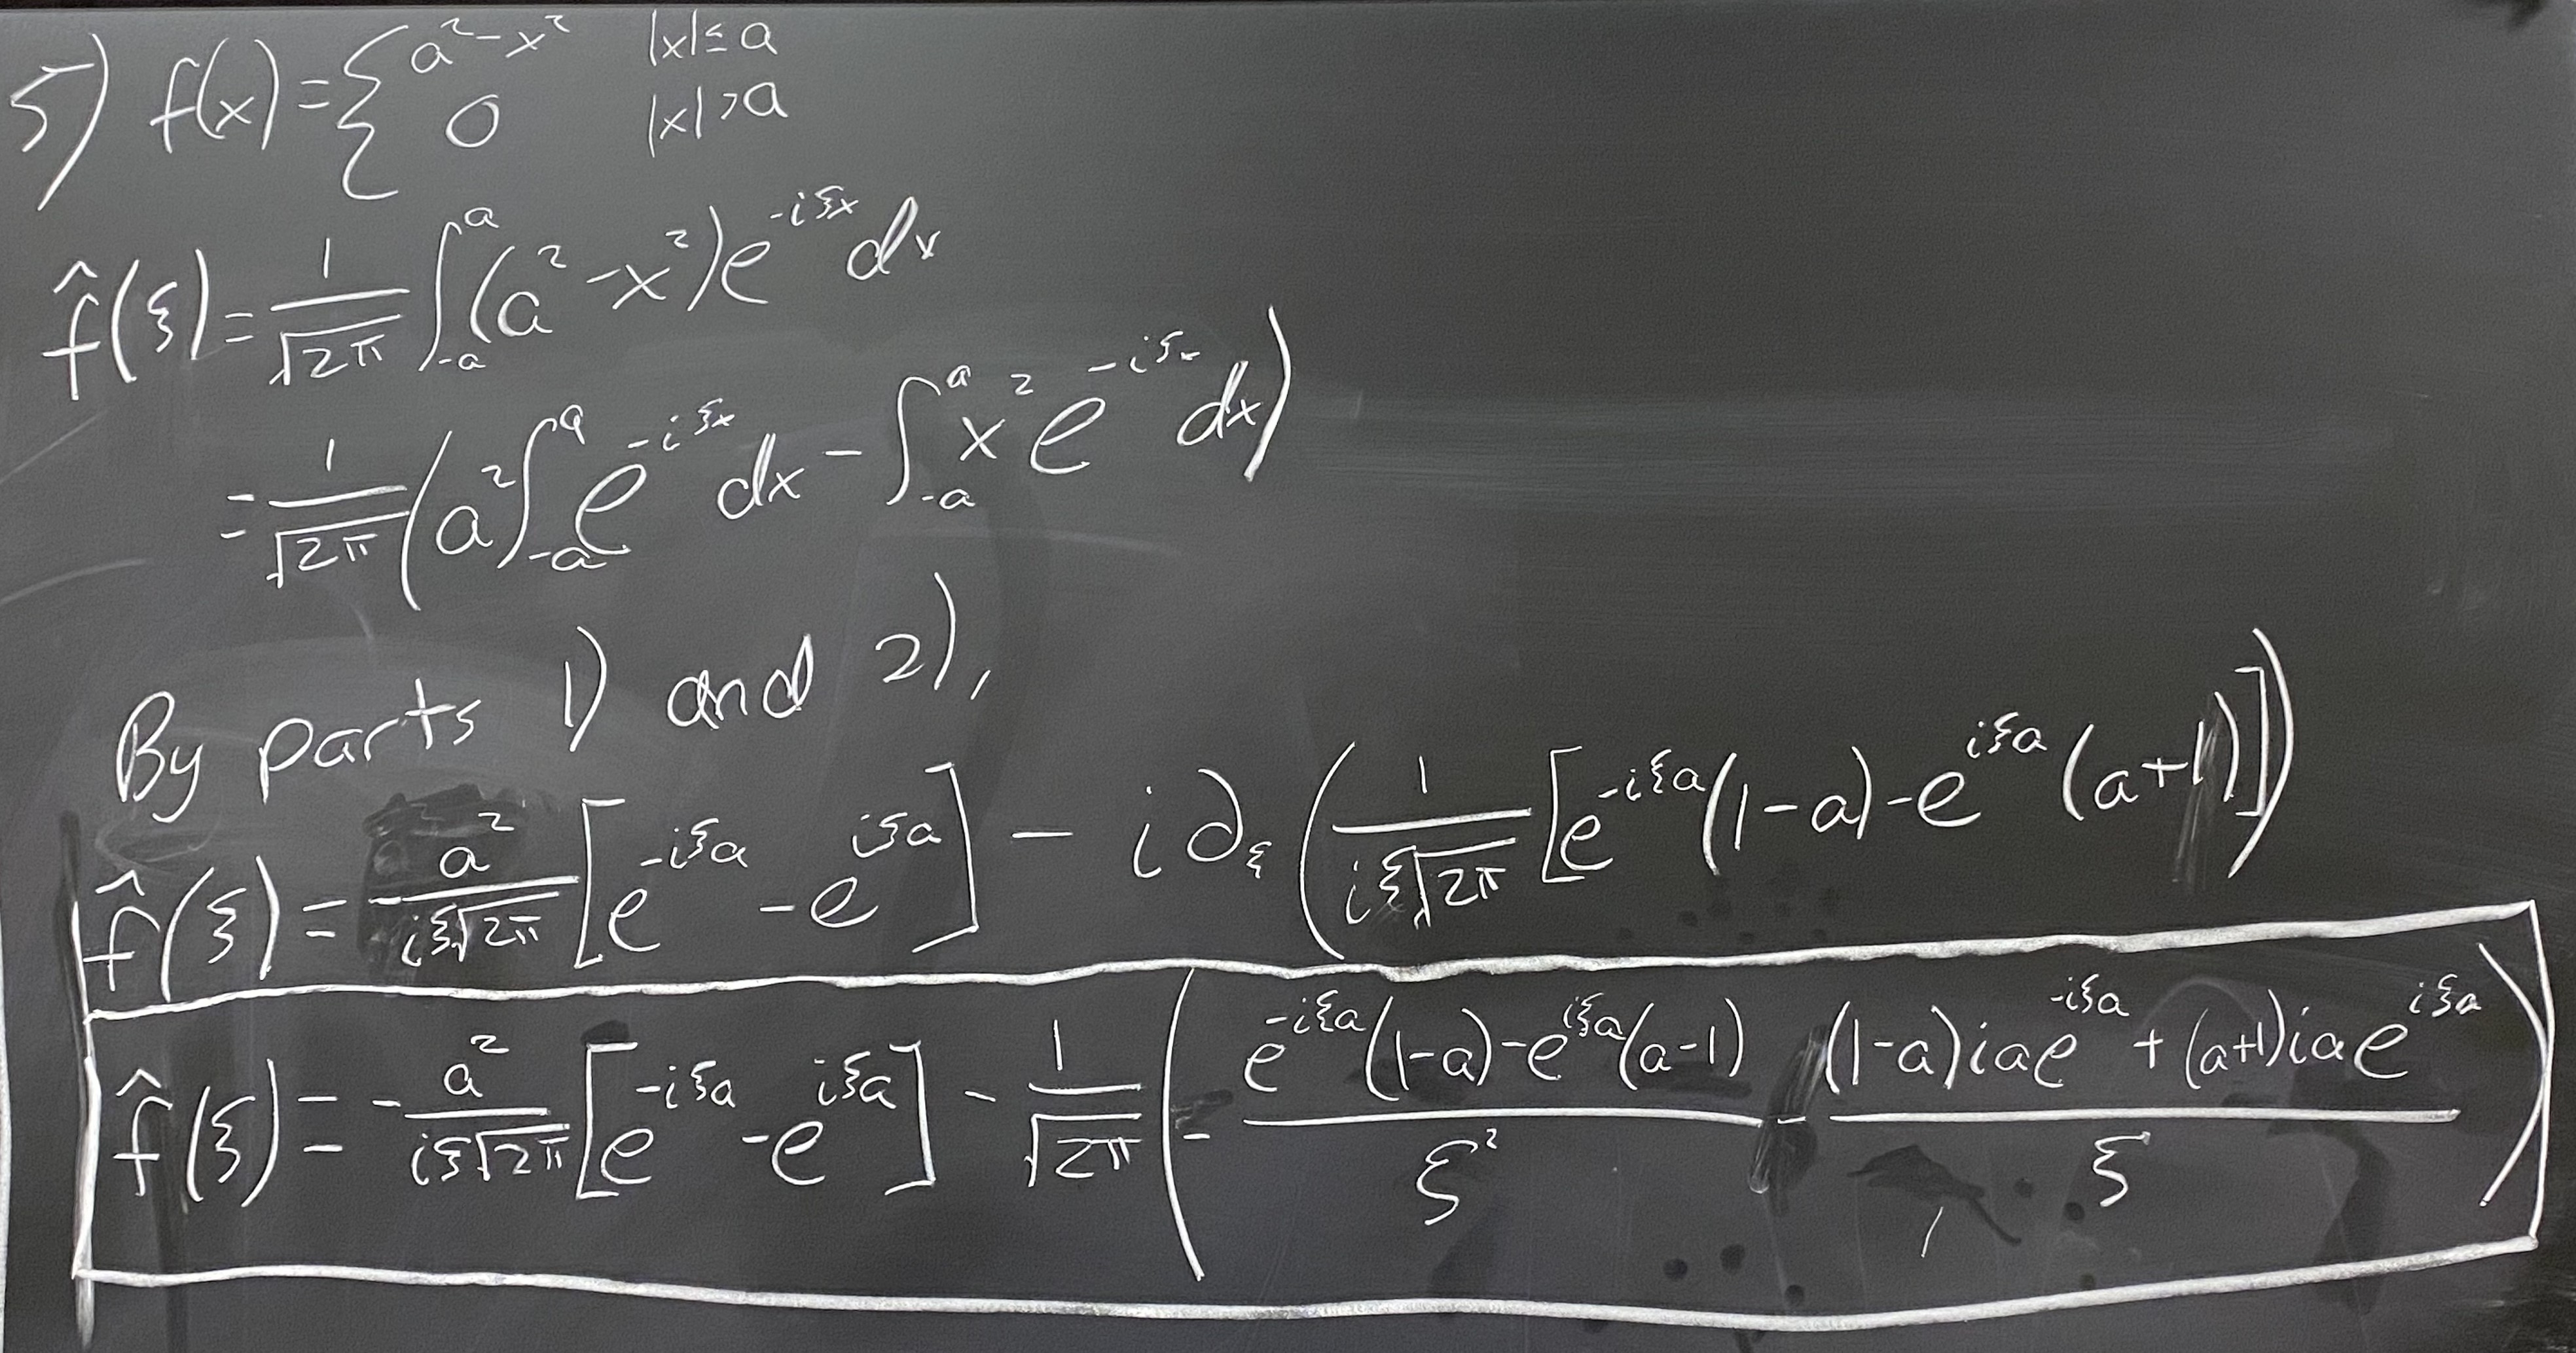 5) f(x) = { a² - x² |x| ≤ a
0 |x| > a
f̂(ξ) = 1/√2π ∫_{-a}^{a} (a² - x²) e^{-iξx} dx
= 1/√2π ( a² ∫_{-a}^{a} e^{-iξx} dx - ∫_{-a}^{a} x² e^{-iξx} dx )
By parts 1) and 2),
f̂(ξ) = - a²/(iξ√2π) [ e^{-iξa} - e^{iξa} ] - i ∂_ξ ( 1/(iξ√2π) [ e^{-iξa} (1-a) - e^{iξa} (a+1) ] )
f̂(ξ) = - a²/(iξ√2π) [ e^{-iξa} - e^{iξa} ] - 1/√2π ( - (e^{-iξa} (1-a) - e^{iξa} (a-1))/ξ² - ((1-a) i a e^{-iξa} + (a+1) i a e^{iξa})/ξ )